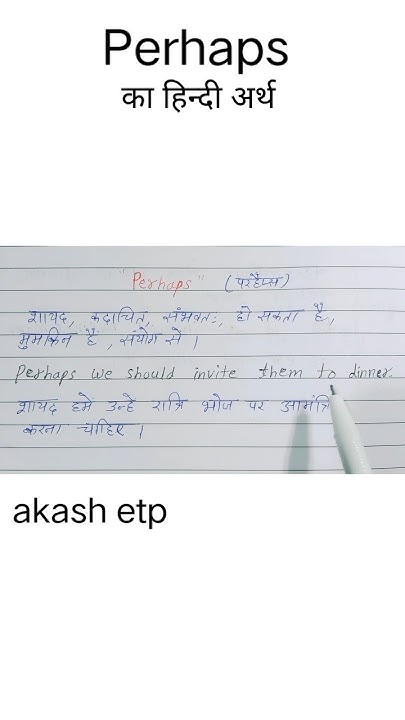 Perhaps
का हिन्दी अर्थ
"Perhaps" (परहैप्स)
शायद, कदाचित, संभवतः, हो सकता है,
मुमकिन है, संयोग से ।
Perhaps we should invite them to dinner.
शायद हमें उन्हे रात्रि भोज पर आमंत्रि
करना चाहिए ।
akash etp